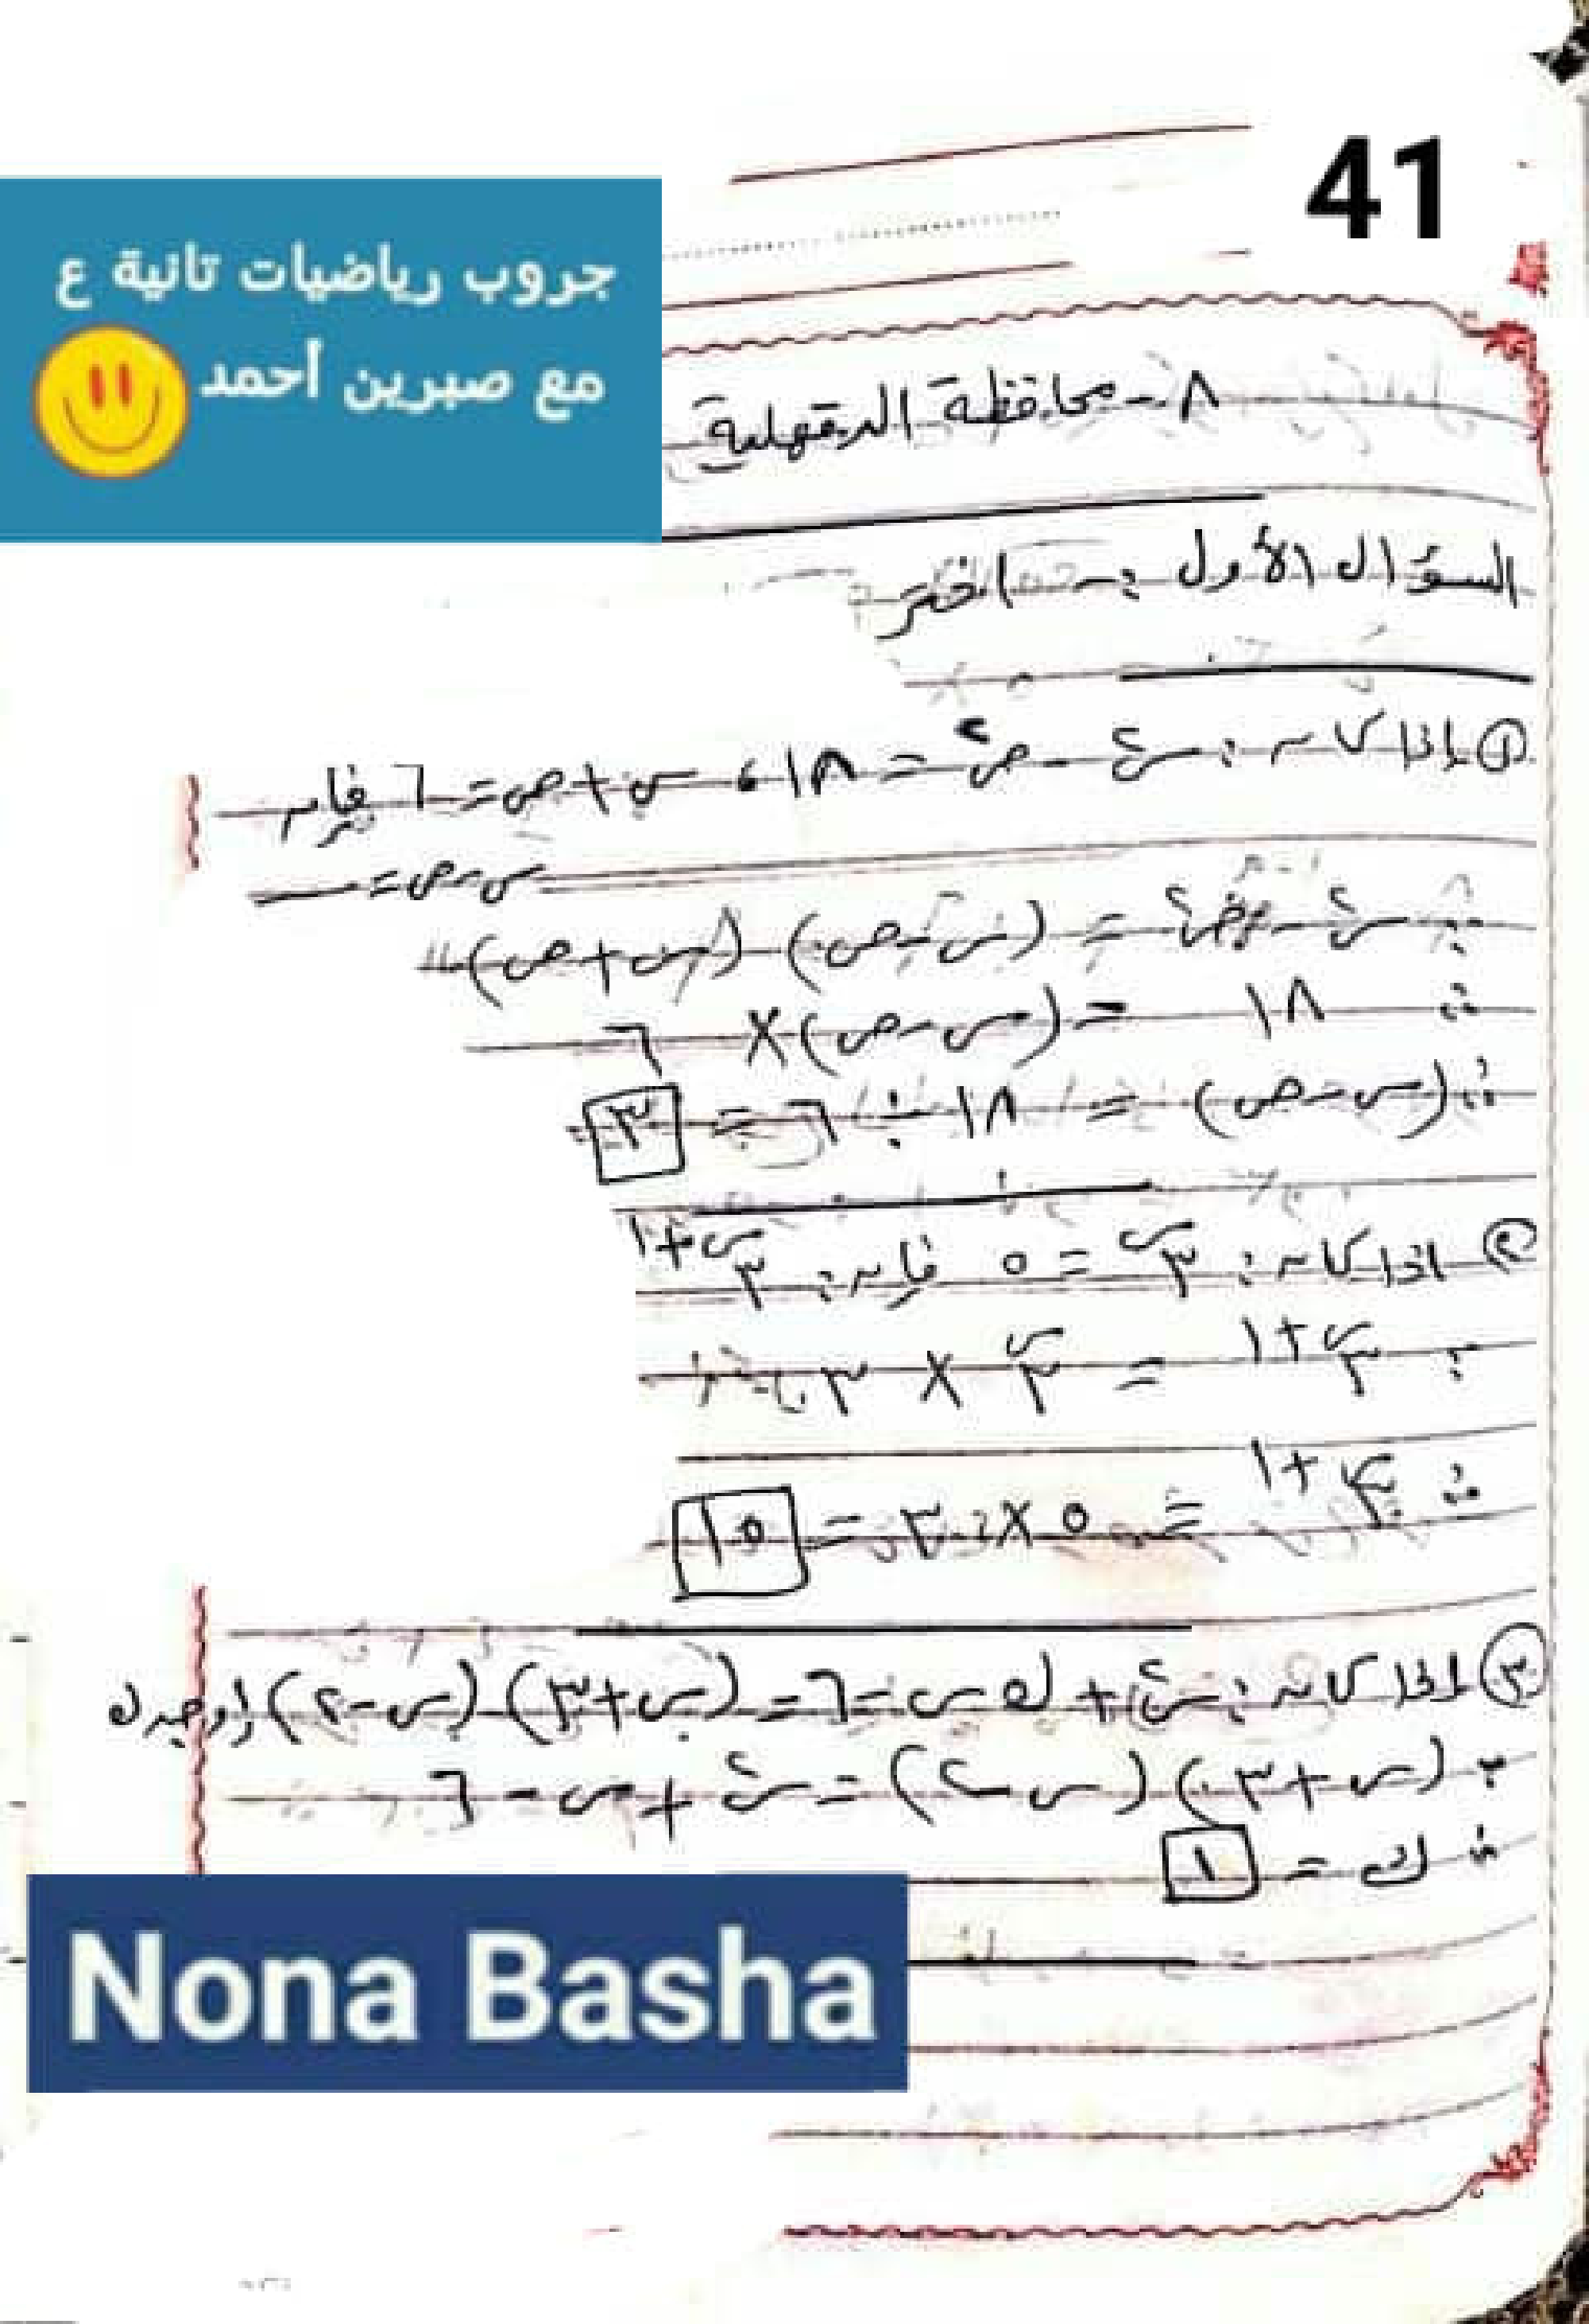 41
جروب رياضيات تانية ع
مع صبرين أحمد
٨ - محافظة الدقهلية
السؤال الأول :- اختر
① إذا كان : س٢ - ص٢ = ١٨ ، س + ص = ٦ فإن
س - ص =
∵ س٢ - ص٢ = (س - ص) (س + ص)
∴ ١٨ = (س - ص) × ٦
∴ (س - ص) = ١٨ ÷ ٦ = ٣
② اذا كان : ٣^س = ٥ فإن : ٣^س+١
∵ ٣^س+١ = ٣^س × ٣
∴ ٣^س+١ = ٥ × ٣ = ١٥
③ اذا كان : س٢ + ك س - ٦ = (س + ٣) (س - ٢) اوجد ك
∵ (س + ٣) (س - ٢) = س٢ + س - ٦
∴ ك = ١
Nona Basha